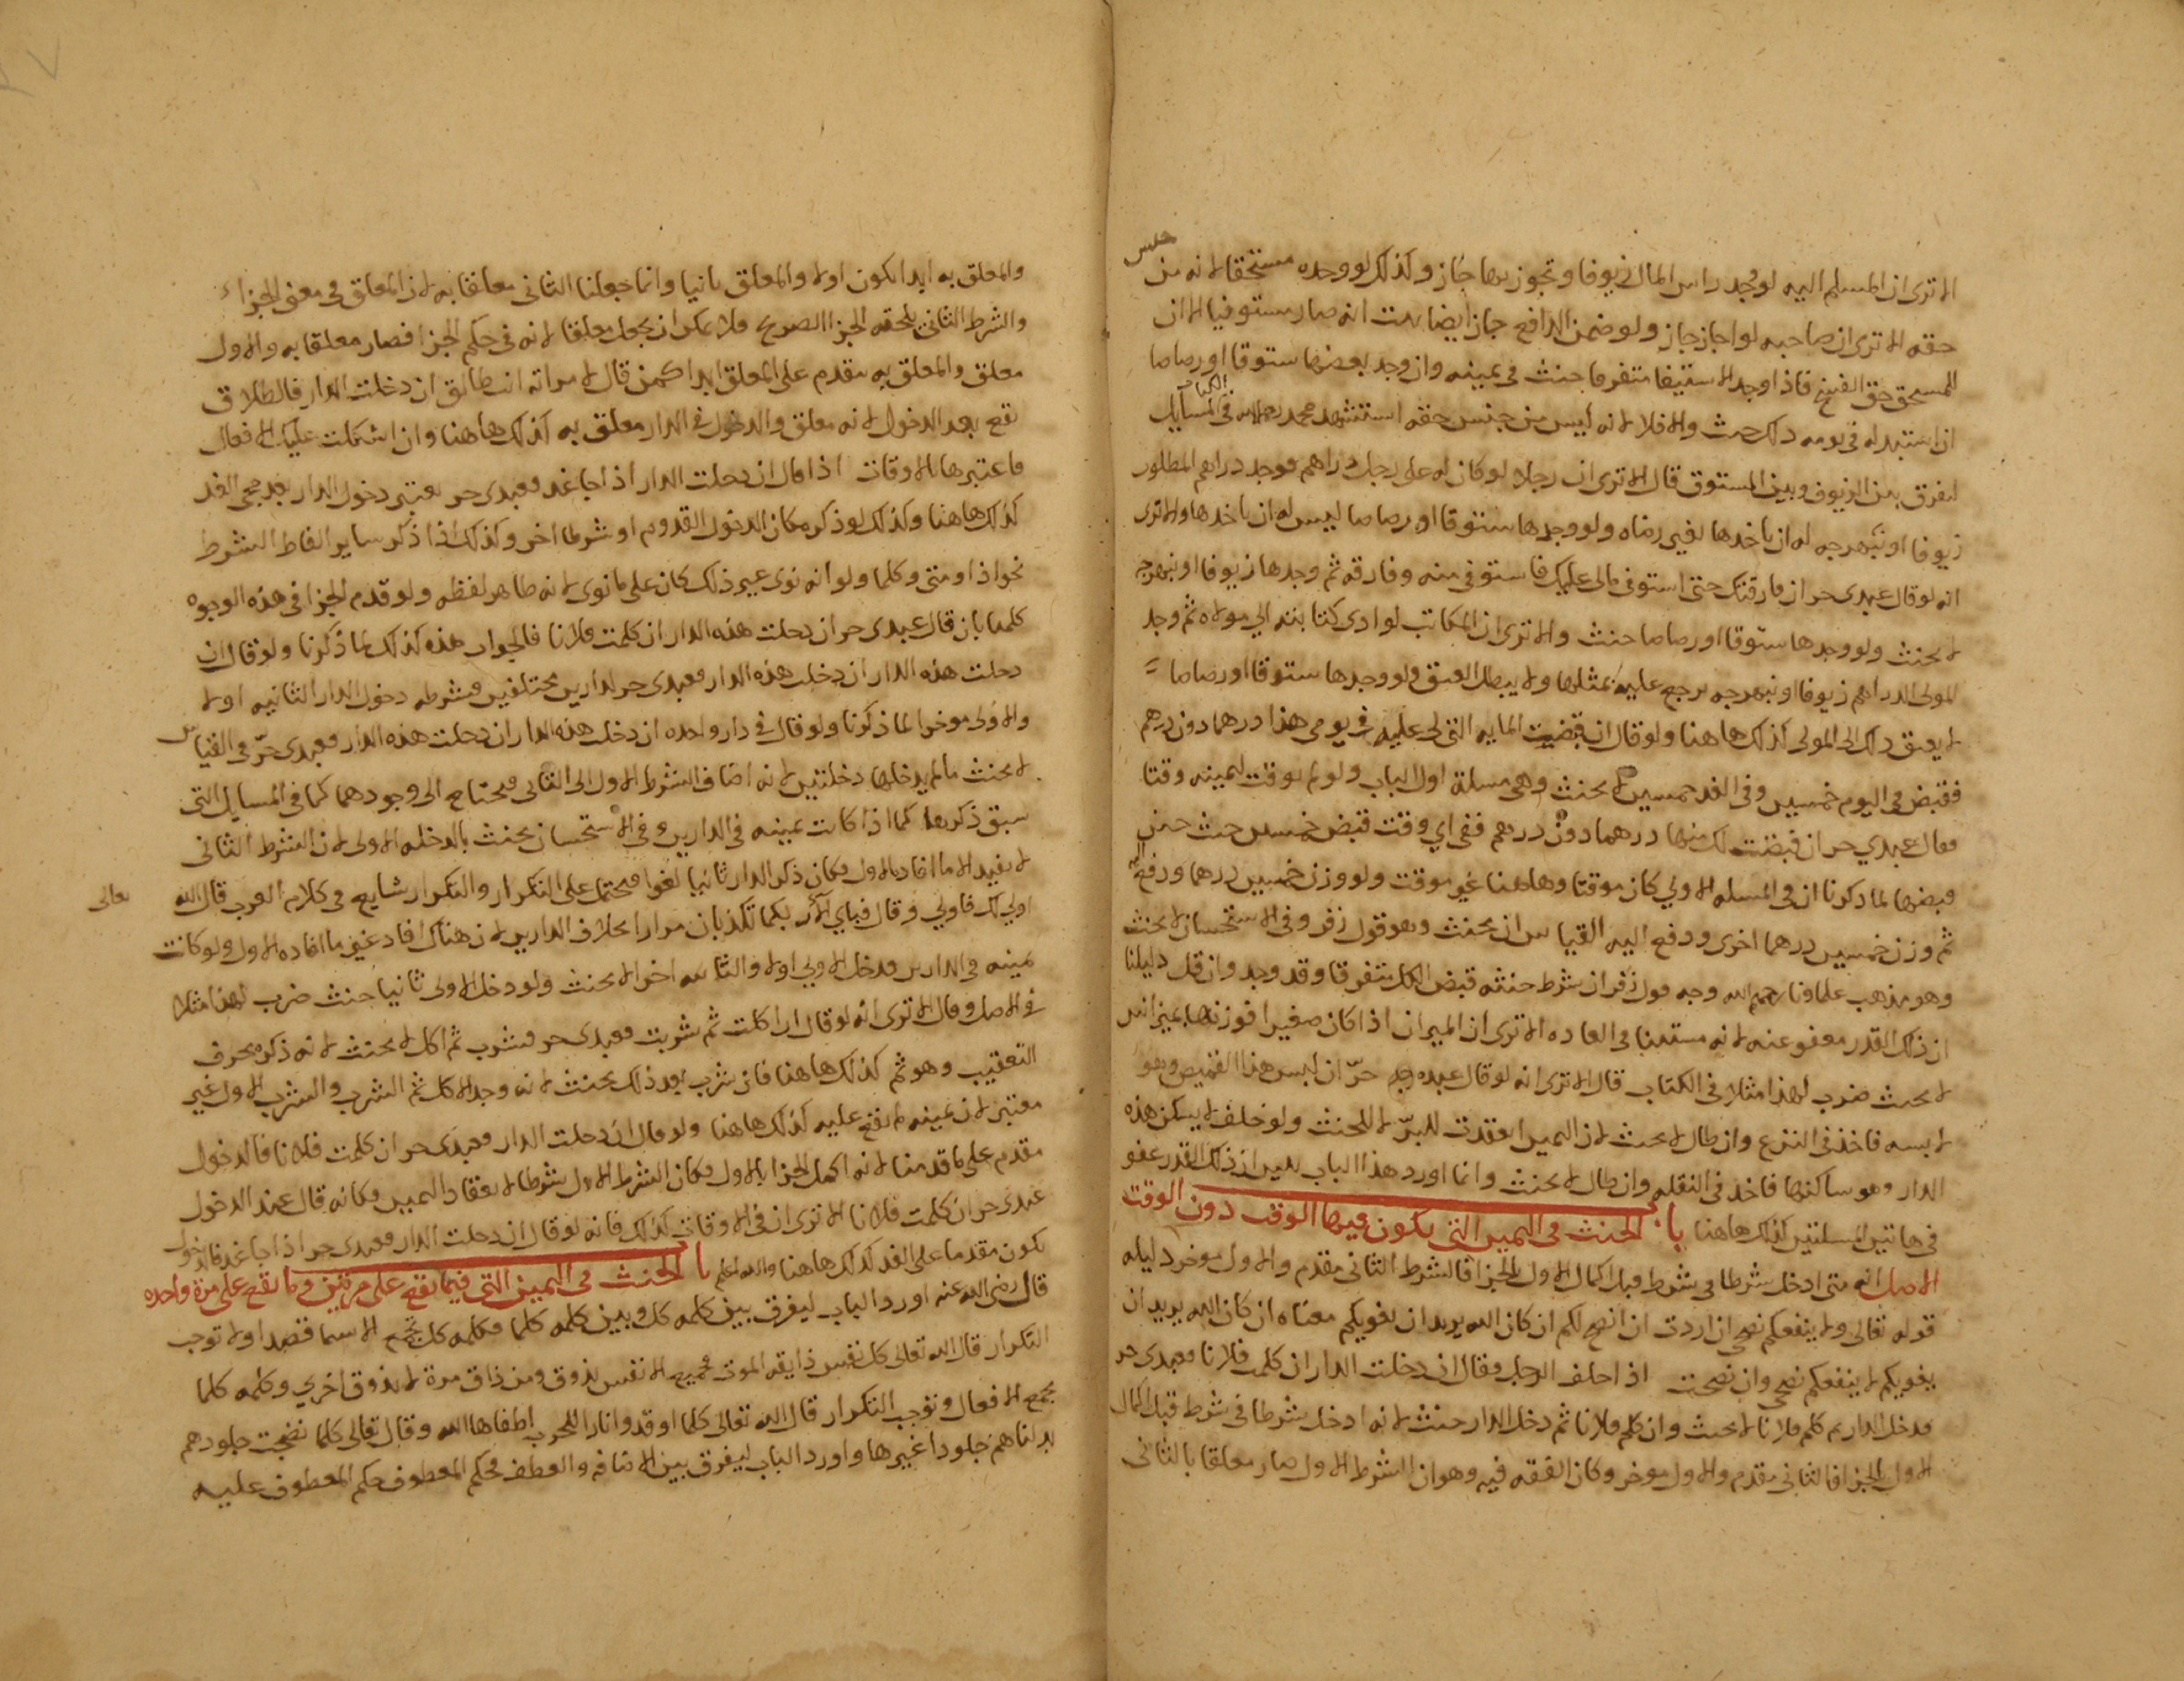 الا ترى ان المسلم اليه لو وجد راس المال زيوفا وتجوز بها جاز وكذلك لو وجده مستحقا لانه من جنس
حقه الا ترى ان صاحبه لو اجاز جاز ولو ضمن الدافع جاز ايضا ثبت انه صار مستوفيا الا ان
للمستحق حق الفسخ فاذا وجد الاستيفا متفرقا حنث في يمينه وان وجد بعضها ستوقا او رصاصا
ان استبدله في يومه ذلك حنث والا فلا لانه ليس من جنس حقه استشهد محمد رحمه الله في الكتاب المسايل
لفرق بين الزيوف وبين الستوق قال الا ترى ان رجلا لو كان له على رجل دراهم فوجد دراهم المطلوب
زيوفا او نبهرجه له ان ياخدها بغير رضاه ولو وجدها ستوقا او رصاصا ليس له ان ياخدها والا ترى
انه لو قال عبدى حر ان فارقتك حتى استوفى مالى عليك فاستوفى منه وفارقه ثم وجدها زيوفا او نبهرجه
لا يحنث ولو وجدها ستوقا او رصاصا حنث والا ترى ان المكاتب لو ادى كتابته الى مولاه ثم وجد
المولى الدراهم زيوفا او نبهرجه يرجع عليه بمثلها ولا يبطل العتق ولو وجدها ستوقا او رصاصا
لا يعتق ذلك الى المولى كذلك هاهنا ولو قال ان قبضت المايه التى لى عليك فى يومى هذا درهما دون درهم
فقبض في اليوم خمسين وفي الغد خمسين لا يحنث وهى مسلة اول الباب ولو لم يوقت ليمينه وقتا
فقال عبدي حر ان قبضت لك منها درهما دون درهم ففى اي وقت قبض خمسين حنث حين
قبضها لما ذكرنا ان في المسله الاولي كان موقتا وهاهنا غير موقت ولو وزن خمسين درهما ودفع اليه
ثم وزن خمسين درهما اخرى ودفع اليه القياس ان يحنث وهو قول زفر وفى الاستحسان لا يحنث
وهو مذهب علماونا رحمهم الله وجه قول زفر ان شرط حنثه قبض الكل متفرقا وقد وجد وان قل دليلنا
ان ذلك القدر معفو عنه لانه مستثنا فى العاده الا ترى ان الميزان اذا كان صغيرا فوزنها بميزانين
لا يحنث ضرب لهذا مثلا فى الكتاب قال الا ترى انه لو قال عبده حرّ ان لبس هذا القميص وهو
لابسه فاخذ فى النزع وان طال لا يحنث لان اليمين انعقدت للبرّ لا للحنث ولو حلف لا يسكن هذه
الدار وهو ساكنها فاخذ فى النقله وان طال لا يحنث وانما اورد هذا الباب ليبين ان ذلك القدر عفو
فى هاتين المسلتين كذلك هاهنا باب الحنث فى اليمين التى يكون فيها الوقت دون الوقت
الاصل انه متى ادخل شرطا فى شرط قبل اكمال الاول بالجزا فالشرط الثانى مقدم والاول موخر دليله
قوله تعالى ولا ينفعكم نصحى ان اردت ان انصح لكم ان كان الله يريد ان يغويكم معناه ان كان الله يريد ان
يغويكم لا ينفعكم نصحى وان نصحت اذا حلف الرجل فقال ان دخلت الدار ان كلمت فلانا فعبدى حر
فدخل الدار ثم كلم فلانا لا يحنث وان كلم فلانا ثم دخل الدار حنث لانه ادخل شرطا فى شرط قبل اكمال
الاول بالجزا فالثانى مقدم والاول موخر وكان الفقه فيه وهو ان الشرط الاول صار معلقا بالثانى
والمعلق به ابدا يكون اولا والمعلق ثانيا وانما جعلنا الثانى معلقا به لان المعلق فى معنى الجزاء
والشرط الثانى يلحقه الجزا الصريح فلا يمكن ان يجعل معلقا لانه فى حكم الجزا فصار معلقا به والاول
معلق والمعلق به مقدم على المعلق ابدا كمن قال لامراته انت طالق ان دخلت الدار فالطلاق
يقع بعد الدخول لانه معلق والدخول فى الدار معلق به كذلك هاهنا وان اشكلت عليك الافعال
فاعتبرها بالاوقات اذا قال ان دخلت الدار اذا جا غد فعبدى حر يعتبر دخول الدار بعد مجى الغد
كذلك هاهنا وكذلك لو ذكر مكان الدخول القدوم او شرطا اخر وكذلك اذا ذكر ساير الفاظ الشرط
نحو اذا ومتى وكلما ولو انه نوى غير ذلك كان على ما نوى لانه ظاهر لفظه ولو قدم الجزا فى هذه الوجوه
كلها بان قال عبدى حر ان دخلت هذه الدار ان كلمت فلانا فالجواب هذه كذلك لما ذكرنا ولو قال ان
دخلت هذه الدار ان دخلت هذه الدار فعبدى حر لدارين مختلفين فشرطه دخول الدار الثانيه اولا
والاولى موخرا لما ذكرنا ولو قال فى دار واحده ان دخلت هذه الدار ان دخلت هذه الدار فعبدى حرّ فى القياس
لا يحنث ما لم يدخلها دخلتين لانه اضاف الشرط الاول الى الثانى فيحتاج الى وجودهما كما فى المسايل التى
سبق ذكرها كما اذا كانت يمينه فى الدارين وفى الاستحسان يحنث بالدخله الاولى لان الشرط الثانى
لا يفيد الا ما افاد الاول فكان ذكر الدار ثانيا لغوا فيحتمل على التكرار والتكرار شايع فى كلام العرب قال الله تعالى
اولى لك فاولى وقال فباى الا ربكما تكذبان مرارا بخلاف الدارين لان هناك افاد غير ما افاده الاول ولو كانت
يمينه فى الدارين فدخل الاولى اولا والثانيه اخرا لا يحنث ولو دخل الاولى ثانيا حنث ضرب لهذا مثلا
فى الاصل وقال الا ترى انه لو قال ان اكلت ثم شربت فعبدى حر فشرب ثم اكل لا يحنث لانه ذكره بحرف
التعقيب وهو ثم كذلك هاهنا فان شرب بعد ذلك يحنث لانه وجد الاكل ثم الشرب والشرب الاول غير
معتبر لان يمينه لم يقع عليه كذلك هاهنا ولو قال ان دخلت الدار فعبدى حر ان كلمت فلانا فالدخول
مقدم على ما قدمنا لانه اكمل الجزا بالاول فكان الشرط الاول شرطا لانعقاد اليمين فكانه قال عند الدخول
عبدى حر ان كلمت فلانا الا ترى ان فى الاوقات كذلك فانه لو قال ان دخلت الدار فعبدى حر اذا جا غد فالدخول
يكون مقدما على الغد كذلك هاهنا والله اعلم باب الحنث فى اليمين التى فيما يقع على مرتين وما يقع على مرة واحده
قال رضى الله عنه اورد الباب ليفرق بين كلمه كل وبين كلمه كلما فكلمه كل تجمع الاسما قصدا ولا توجب
التكرار قال الله تعالى كل نفس ذايقه الموت فجميع الانفس يذوق ومن ذاق مرة لا يذوق اخري وكلمه كلما
تجمع الافعال وتوجب التكرار قال الله تعالى كلما اوقدوا نارا للحرب اطفاها الله وقال تعالى كلما نضجت جلودهم
بدلناهم جلودا غيرها واورد الباب ليفرق بين الاضافه والعطف فحكم المعطوف حكم المعطوف عليه